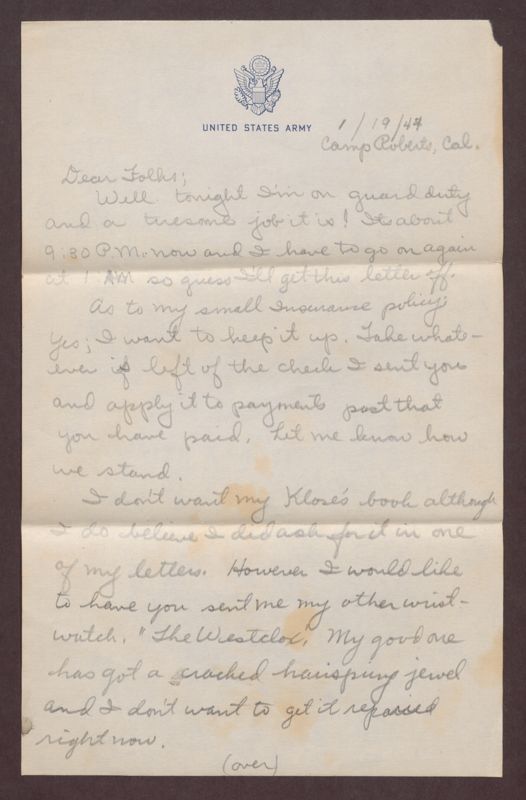 UNITED STATES ARMY
1/19/44
Camp Roberts, Cal.
Dear Folks;
Well tonight I'm on guard duty
and a tiresome job it is! Its about
9:30 P.M. now and I have to go on again
at 1 AM so guess I'll get this letter off.
As to my small Insurance policy
Yes; I want to keep it up. Take what-
ever is left of the check I sent you
and apply it to payments past that
you have paid. Let me know how
we stand.
I don't want my Klose's book although
I do believe I did ask for it in one
of my letters. However I would like
to have you sent me my other wrist-
watch, "The Westclox". My good one
has got a cracked hairspring jewel
and I don't want to get it repaired
right now.
(over)